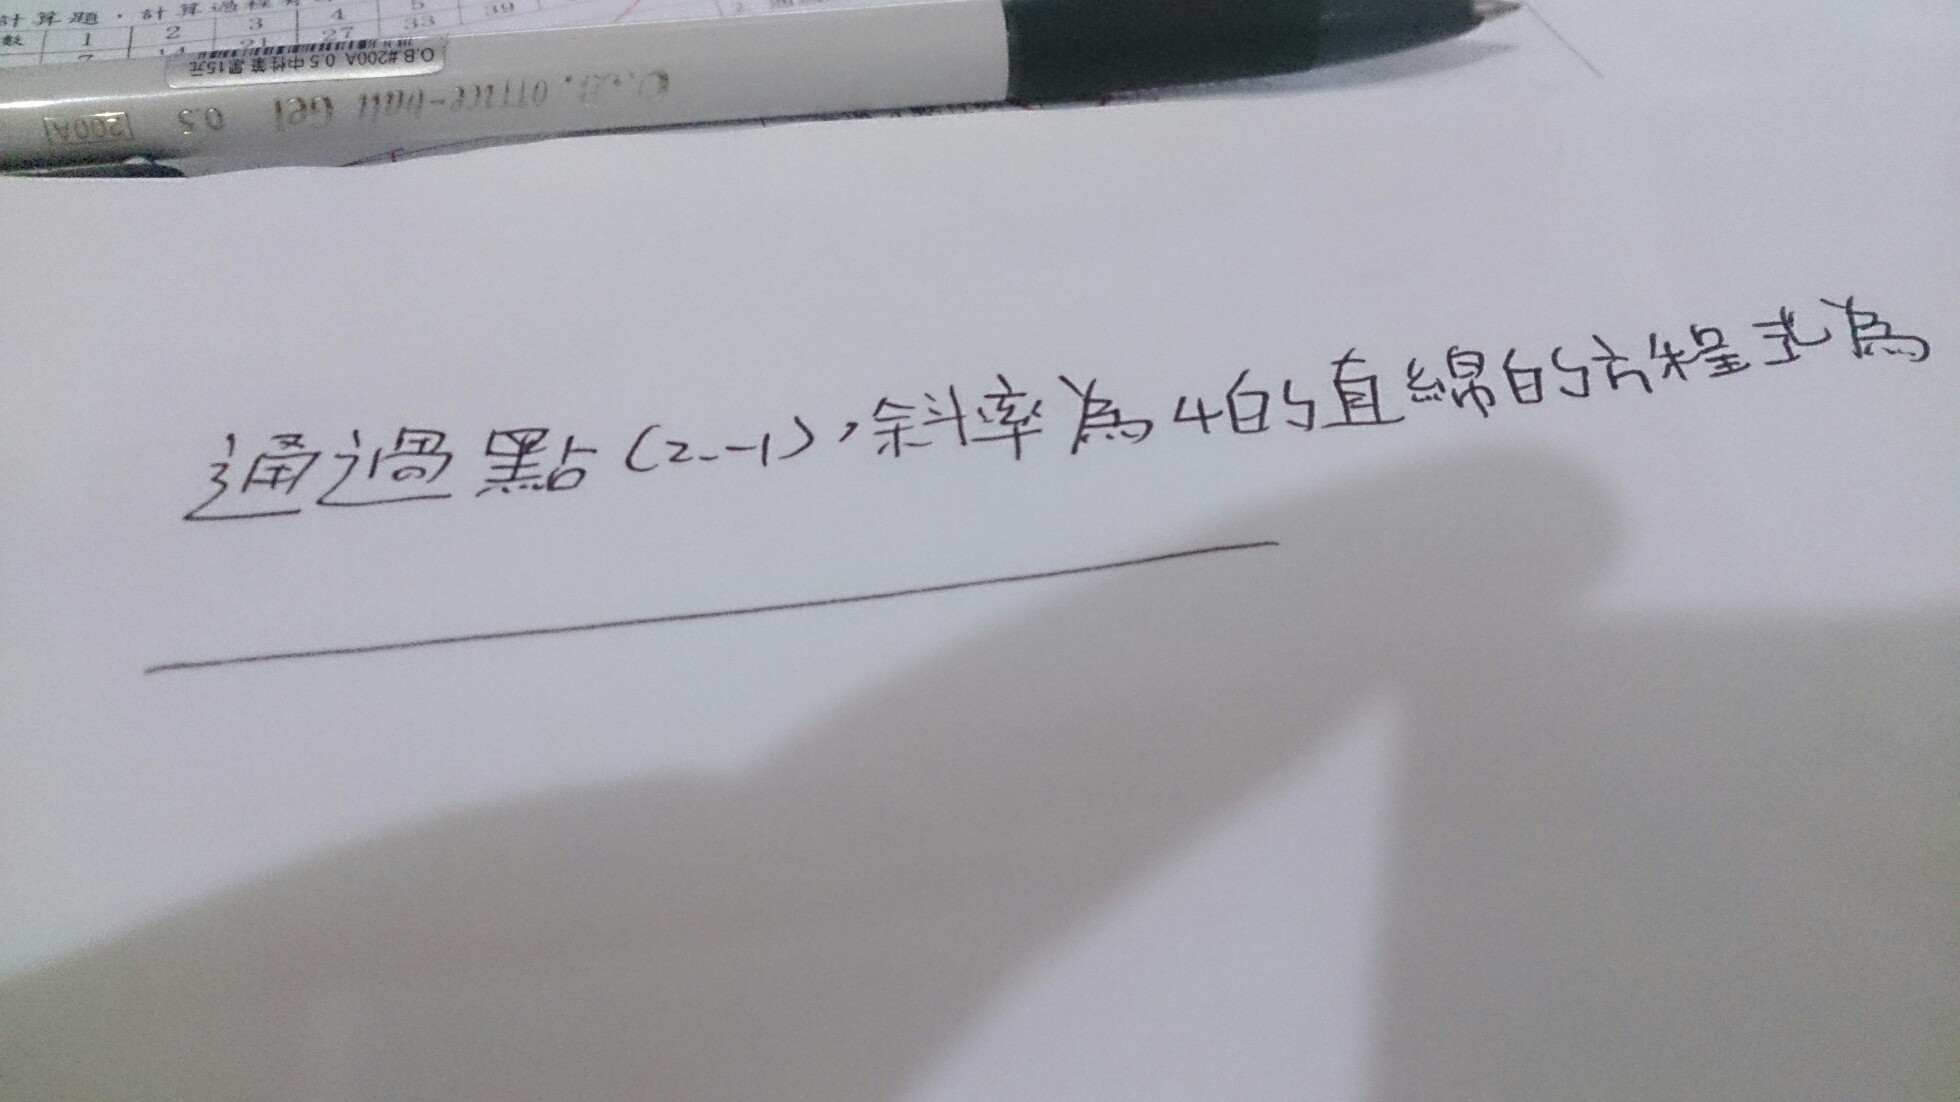 計算題．計算過程
數 1 2 3 4 5
7 14 21 27 33 39
O.B #200A 0.5 中性筆 黑 15元
O.B. office-ball Gel 0.5 200A
通過點(2.-1),斜率為4的直綿的方程式為